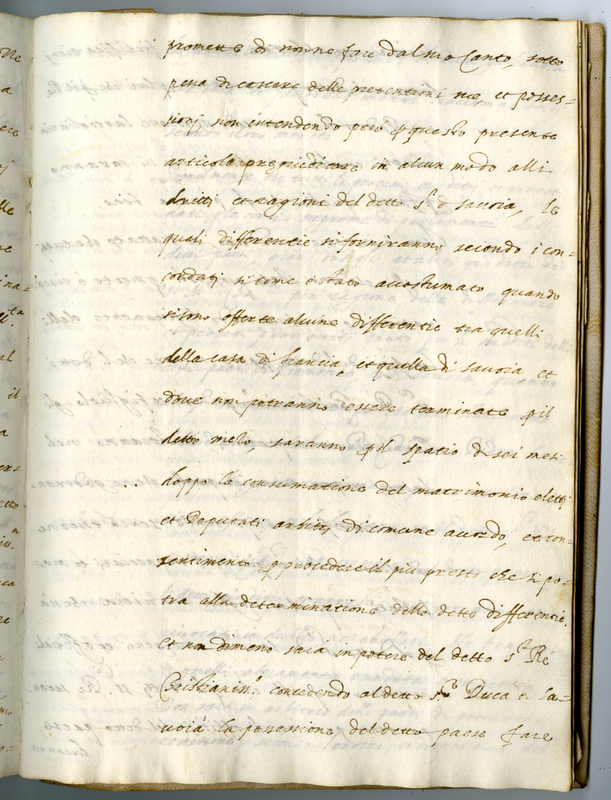 promette di non ne fare dal suo Canto, sotto
pena di cascare delle pretentioni sue et posses=
sioni non intendendo però p questo presente
articolo prejudicare in alcun modo alli
dritti et ragioni del detto s.r di savoia, le
quali differentie si forniranno secondo i con=
cordati si come è stato accostumato quando
si sono offerte alcune differentie tra quelli
della casa di francia, et quella di savoia, et
dove non potranno essere terminate p il
detto melo, saranno p il spatio di sei mesi
doppo la consumatione del matrimonio eletti
et Deputati arbitri di comune acordo, et con=
sentimento p procedere il piu presti che si po=
tra alla determinatione delle dette differentie.
Et non dimeno sarà in potere del detto s.r Rè
Cristianis.o concedendo al detto s.r Duca di Sa=
voia la possessione del detto paese fare